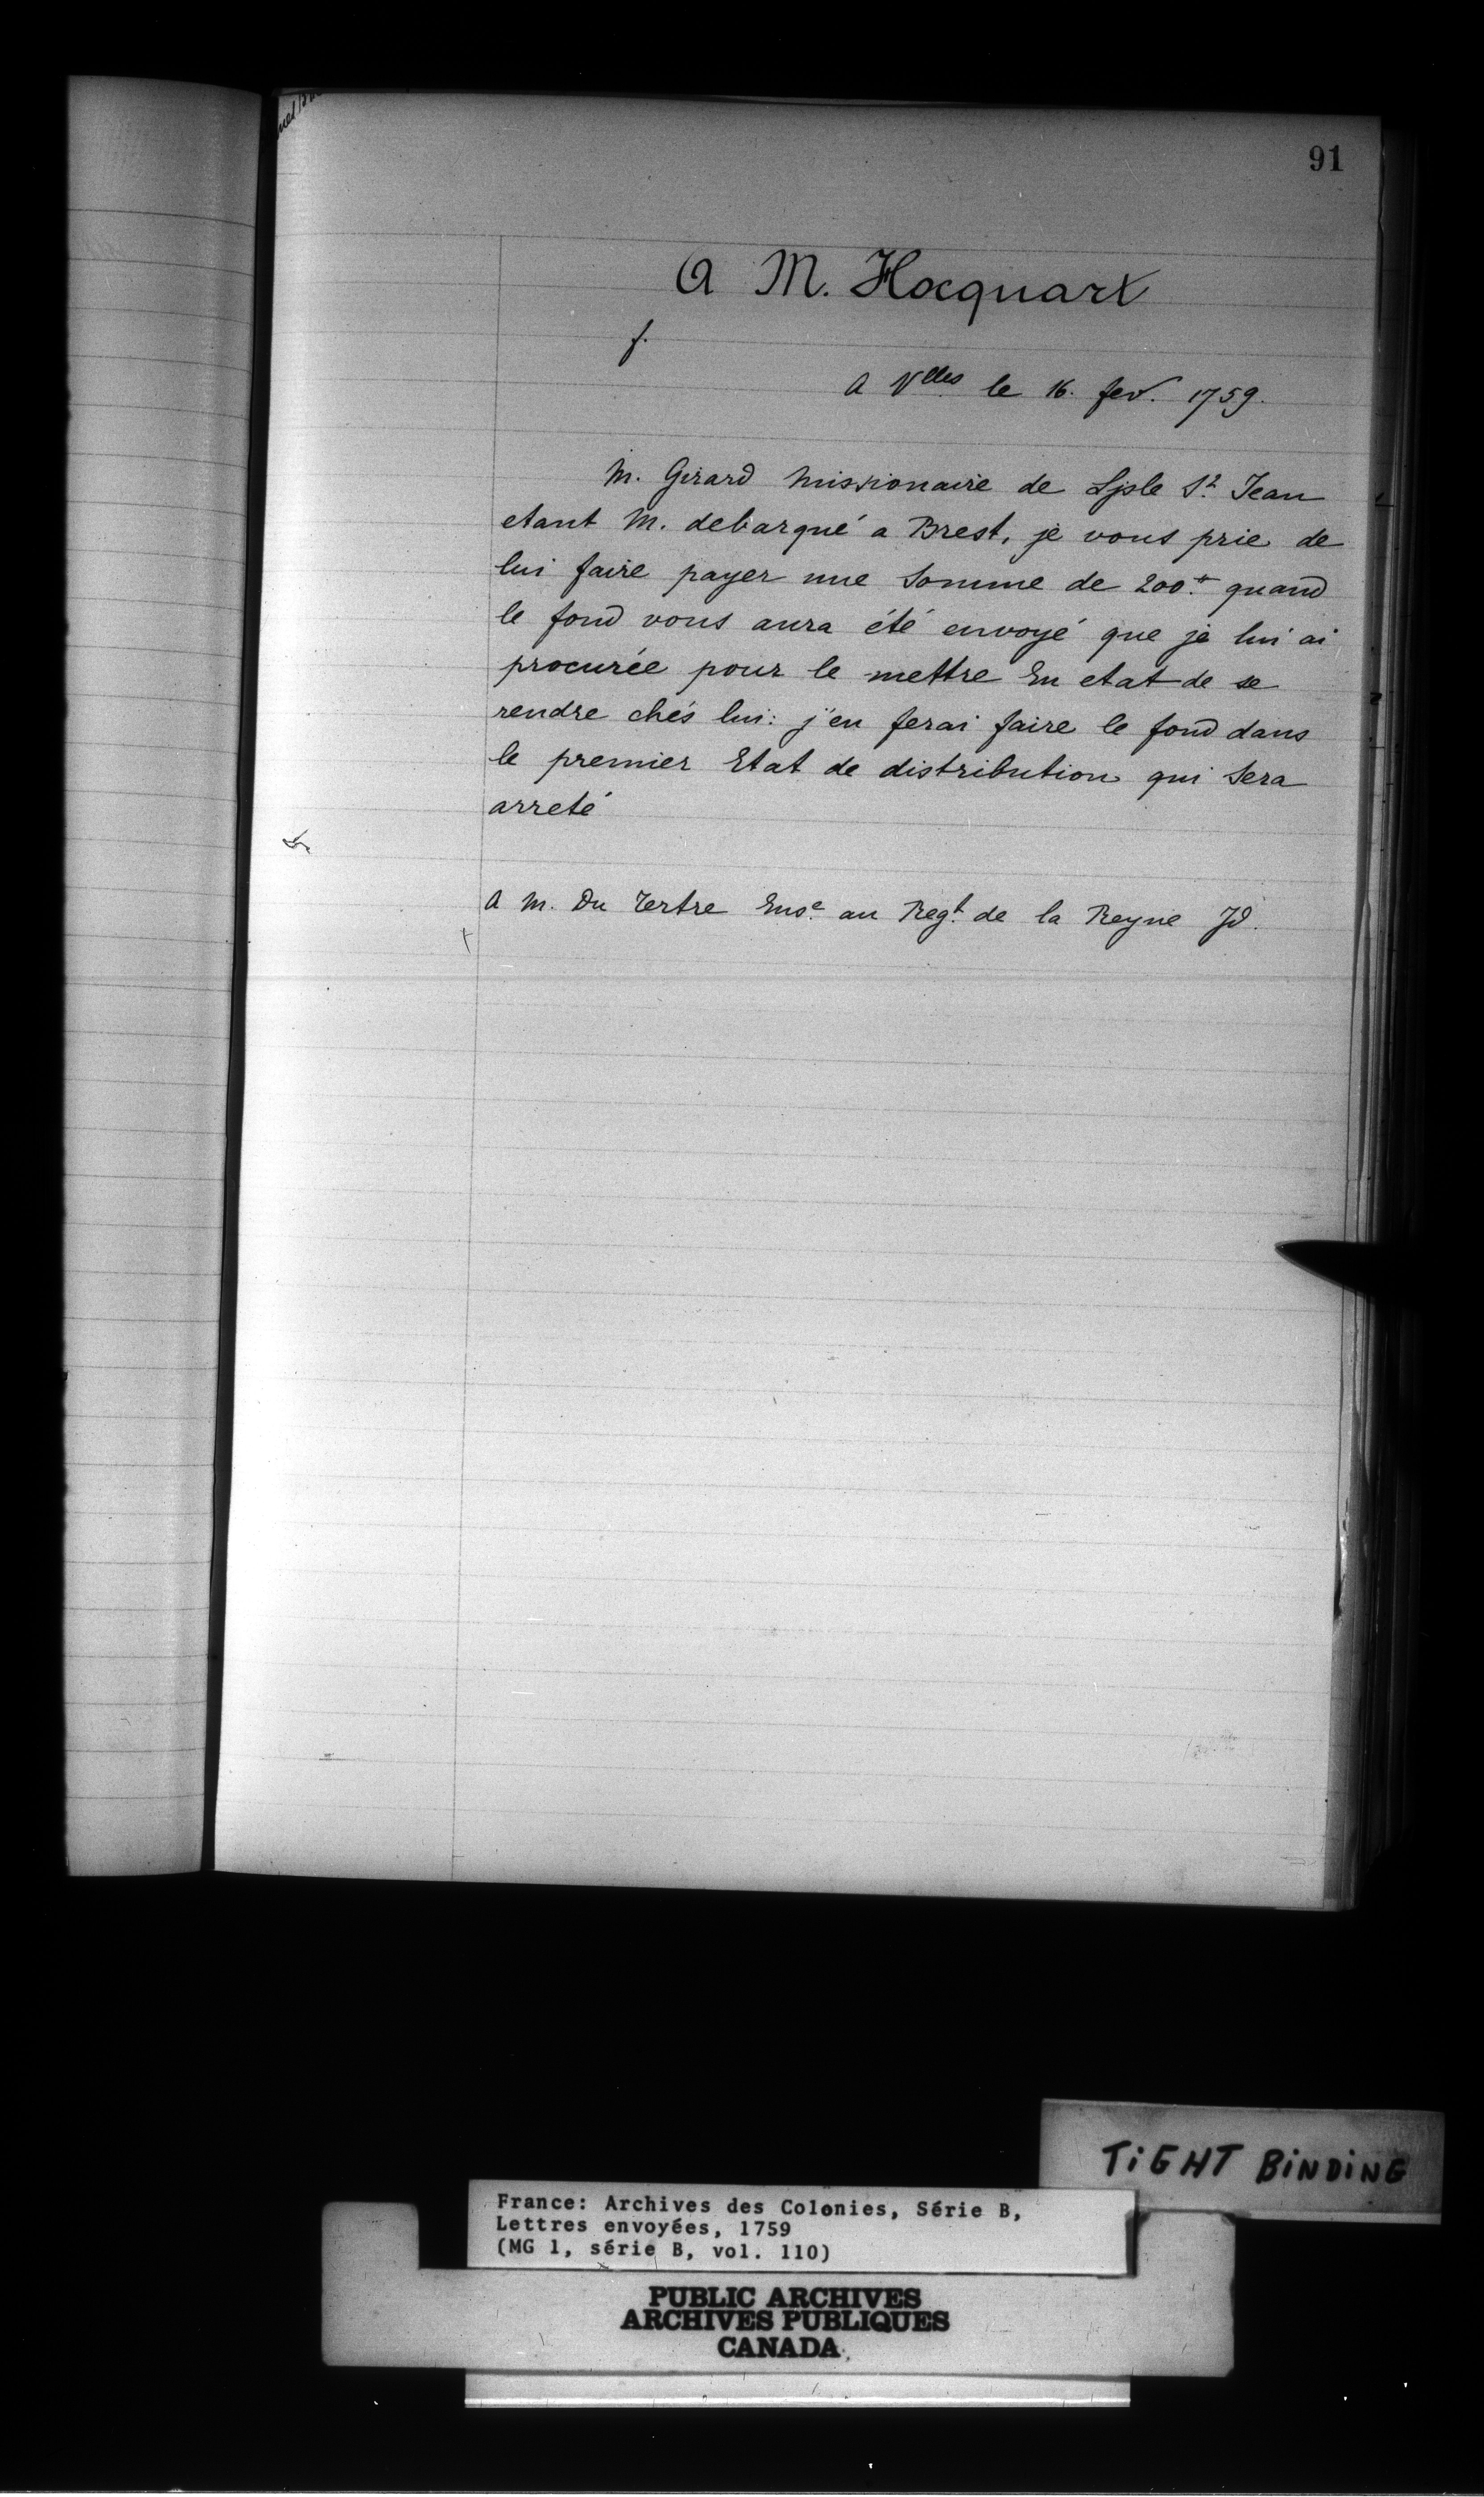 91
A M. Hocquart
f.
A Vlles le 16. fev. 1759.
M. Girard Missionaire de Lisle St Jean
etant M. debarqué a Brest, je vous prie de
lui faire payer une Somme de 200.# quand
le fond vous aura été envoyé que je lui ai
procurée pour le mettre En etat de se
rendre chés lui: j'en ferai faire le fond dans
le premier Etat de distribution qui Sera
arreté
A M. Du Tertre Ense au Regt de la Reyne Jd.
TiGHT BiNDiNG
France: Archives des Colonies, Série B,
Lettres envoyées, 1759
(MG 1, série B, vol. 110)
PUBLIC ARCHIVES
ARCHIVES PUBLIQUES
CANADA